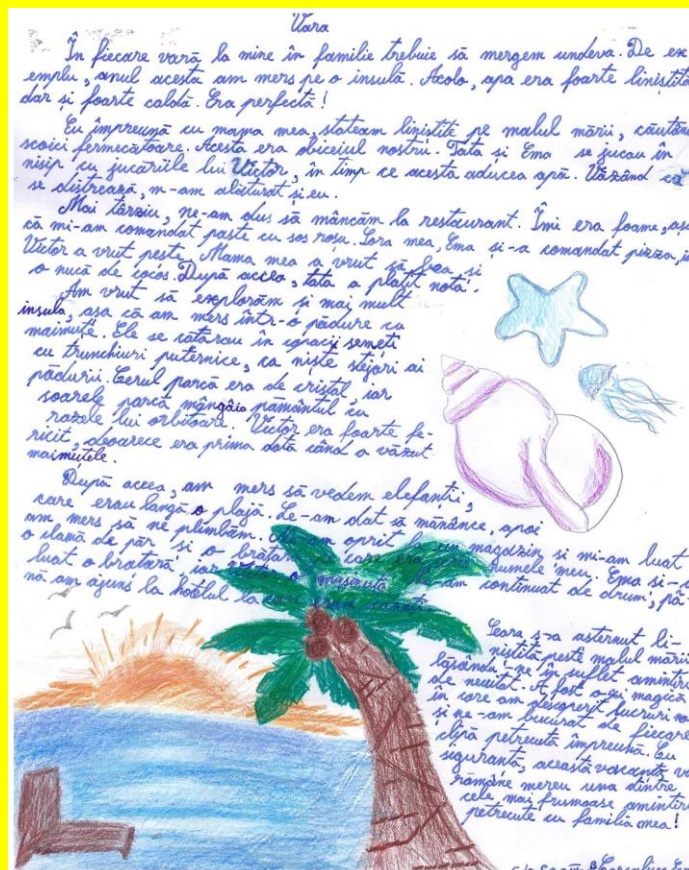 Vara
În fiecare vară la mine în familie trebuie să mergem undeva. De ex
emplu, anul acesta am mers pe o insulă. Acolo, apa era foarte liniștită
dar și foarte caldă. Era perfectă!
Eu împreună cu mama mea, stateam liniștite pe malul mării, căutân
scoici fermecătoare. Acesta era obiceiul nostru. Tata si Ema se jucau în
nisip cu jucăriile lui Victor, în timp ce acesta aducea apă. Văzând că
se distrează, m-am alăturat si eu.
Mai târziu, ne-am dus să mâncăm la restaurant. Îmi era foame, așa
că mi-am comandat paste cu sos roșu. Sora mea, Ema și-a comandat pizza, i
Victor a vrut pește. Mama mea a vrut să bea și
o nucă de cocos. După aceea, tata a plătit nota.
Am vrut să explorăm și mai mult
insula, așa că am mers într-o pădure cu
maimuțe. Ele se cățărau în copacii semeți
cu trunchiuri puternice, ca niște stejari ai
pădurii. Cerul parcă era de cristal, iar
soarele parcă mângâia pământul cu
razele lui orbitoare. Victor era foarte fe-
ricit, deoarece era prima dată când a văzut
maimuțele.
După aceea, am mers să vedem elefanții,
care erau langă o plajă. Le-am dat să mănânce, apoi
am mers să ne plimbăm. oprit la un magazin si mi-am luat
o clamă de păr și o brătar care numele meu. Ema si-a
luat o bratară, iar o mașinută. am continuat de drum, pâ
nă am ajuns la hotelul la care eram cazati.
Seara s-a asternut li-
niștită peste malul mării
lăsându-ne în suflet amintiri
de neuitat. A fost o zi magică
în care am descoperit lucruri no
si ne-am bucurat de fiecare
clipă petrecută împreună. Cu
siguranță, această vacanță va
rămâne mereu una dintre
cele mai frumoase amintiri
petrecute cu familia mea!